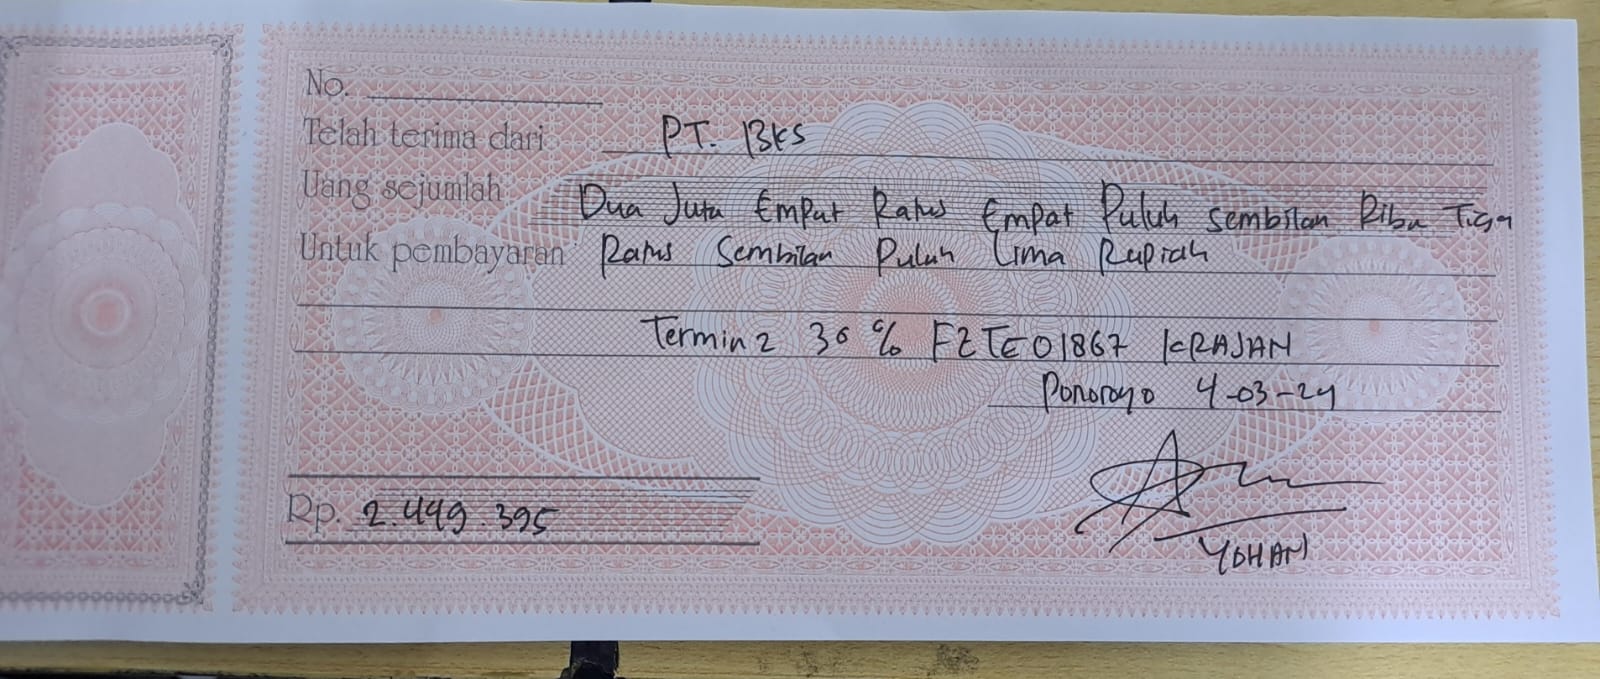 No.
Telah terima dari PT. BKS
Uang sejumlah Dua Juta Empat Ratus Empat Puluh Sembilan Ribu Tiga
Untuk pembayaran Ratus Sembilan Puluh Lima Rupiah
Termin 2 30 % FZTE01867 KRAJAN
Ponorogo 4-03-24
Rp. 2.449.395
YOHAN